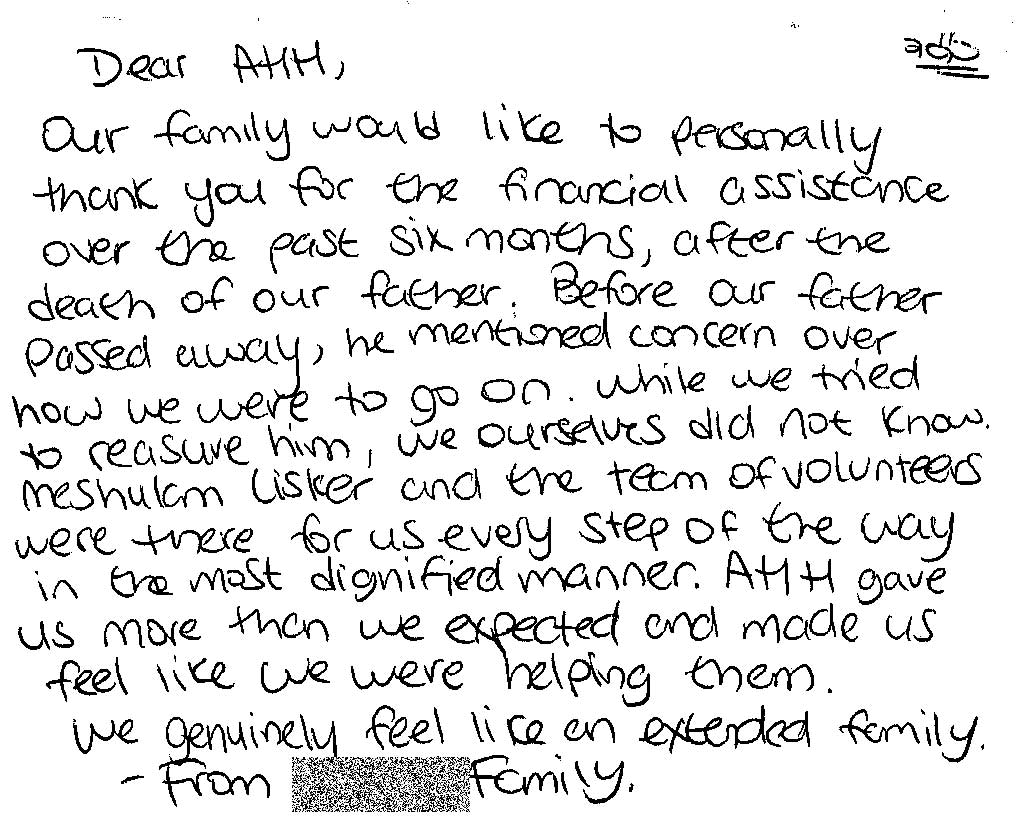 Dear AHH,
Our family would like to personally
thank you for the financial assistance
over the past six months, after the
death of our father. Before our father
passed away, he mentioned concern over
how we were to go on. While we tried
to reasure him, we ourselves did not know.
Meshulam Lisker and the team of volunteers
were there for us every step of the way
in the most dignified manner. AHH gave
us more than we expected and made us
feel like we were helping them.
We genuinely feel like an extended family.
- From Family.